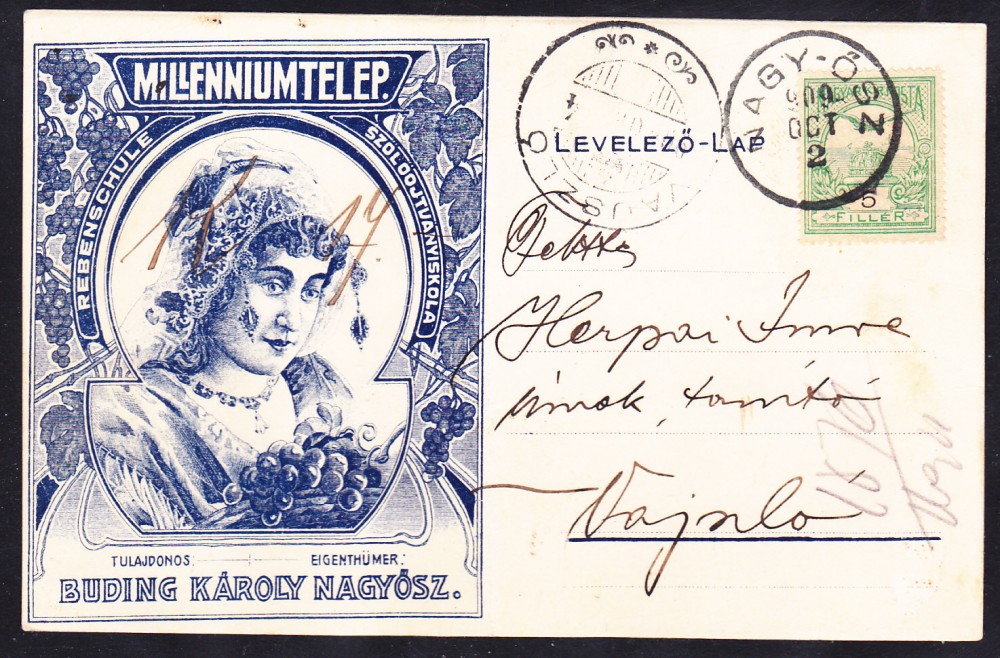 MILLENNIUMTELEP.
REBENSCHULE
SZŐLŐOJTVÁNYISKOLA
TULAJDONOS: EIGENTHÜMER:
BUDING KÁROLY NAGYŐSZ.
LEVELEZŐ-LAP
NAGY-ŐSZ
909
OCT
2
VAJSZLÓ
5
FILLÉR
Tekth
Herpai Imre
úrnak, tanító
Vajszló